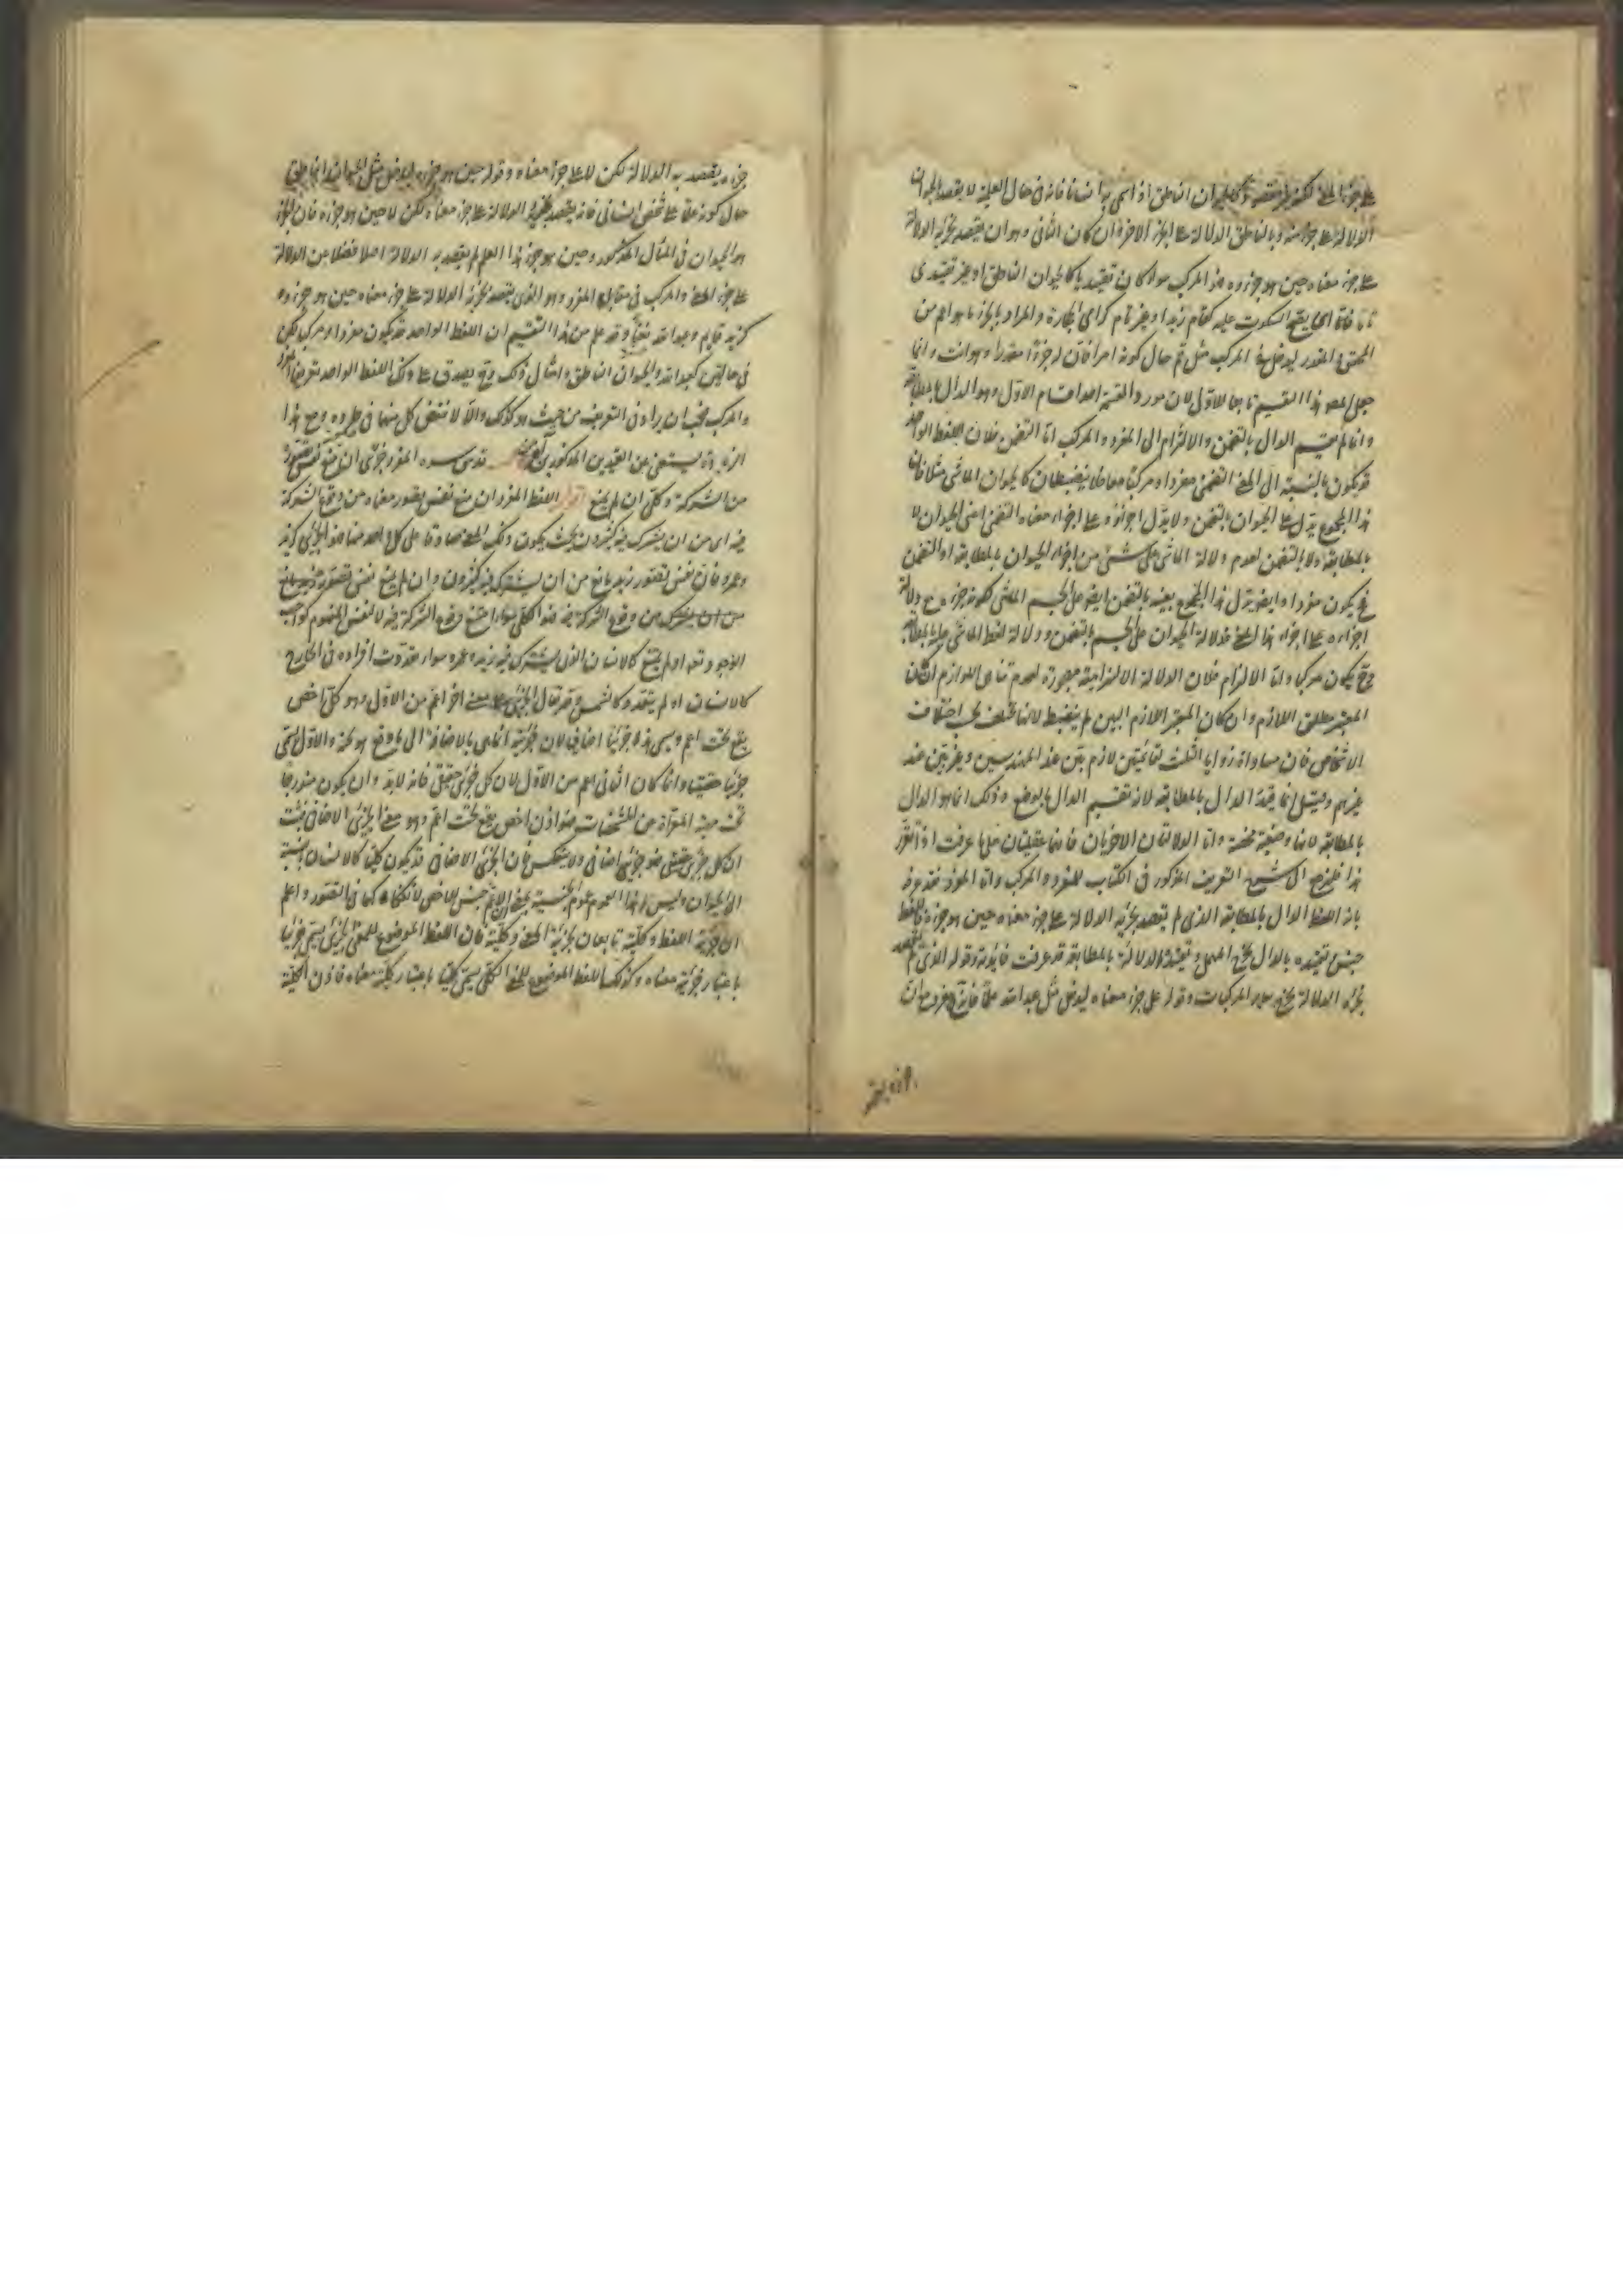 على جزء المعنى لكنه لم يقصد كالحيوان الناطق اذا سمى به انسانا فانه فى حال العلمية لا يقصد بالحيوان
الدلالة على جزء منه وبالناطق الدلالة على الجزء الاخر وان كان الثانى وهو ان يقصد بجزئه الدلالة
على جزء معناه حين هو جزؤه فهو المركب سواء كان تقييديا كالحيوان الناطق او غير تقييدى
تاما فانه اى يصح السكوت عليه كقام زيد او غير تام كرامى الحجارة والمراد بالجزء ما هو اعم من
المحقق والمقدر ليدخل فى المركب مثل قم حال كونه امرا فان له جزءا مقدرا وهو انت وانما
جعل المصـ هذا التقسيم تابعا للاول لان مورد القسمة احد اقسام الاول وهو الدال بالمطابقة
وانما لم يقسم الدال بالتضمن والالتزام الى المفرد والمركب اما التضمن فلان اللفظ الواحد
قد يكون بالنسبة الى المعنى التضمنى مفردا ومركبا معا فلا ينضبطان كالحيوان الماشى مثلا فان
هذا المجموع يدل على الحيوان بالتضمن ولا يدل اجزاؤه على اجزاء معناه التضمنى اعنى الحيوان لا
بالمطابقة ولا بالتضمن لعدم دلالة الماشى على شىء من اجزاء الحيوان بالمطابقة او التضمن
فح يكون مفردا وايضا يدل هذا المجموع بعينه بالتضمن ايضا على الجسم الماشى لكونه جزءه مع دلالة
اجزاءه على اجزاء هذا المعنى لدلالة الحيوان على الجسم بالتضمن ودلالة لفظ الماشى عليه بالمطابقة
وح يكون مركبا واما الالتزام فلان الدلالة الالتزامية مهجورة لعدم تناهى اللوازم ان كان
المعتبر مطلق اللازم وان كان المعتبر اللازم البين لم ينضبط لانها تختلف بحسب اختلاف
الاشخاص فان مساواة زوايا المثلث لقائمتين لازم بين عند المهندسين وغير بين عند
غيرهم وقيل انما قيد الدال بالمطابقة لانه تقسيم الدال بالوضع وذلك انما هو الدال
بالمطابقة لانها وضعية محضة واما الدلالتان الاخريان فانهما عقليتان على ما عرفت اذا تقرر
هذا فلنرجع الى شرح التعريف المذكور فى الكتاب للمفرد والمركب واما المفرد فقد عرفه
بانه اللفظ الدال بالمطابقة الذى لم يقصد بجزئه الدلالة على جزء معناه حين هو جزؤه فاللفظ
جنس تقييده بالدال يخرج المهمل وتقييد الدلالة بالمطابقة قد عرفت فائدته وقوله الذى لم يقصد
بجزئه الدلالة يخرج سائر المركبات وقوله على جزء معناه ليدخل مثل عبد الله علما فانه مفرد مع ان
جزءه يقصد
جزءه يقصد به الدلالة لكن لا على جزء معناه وقوله حين هو جزؤه ليدخل مثل الحيوان الناطق
حال كونه علما على شخص انسانى فانه يقصد بجزئه الدلالة على جزء معناه لكن لا حين هو جزؤه فان الجزء
هو الحيوان فى المثال المذكور وحين هو جزء هذا العلم لم يقصد به الدلالة اصلا فضلا من الدلالة
على جزء المعنى والمركب فى مقابلة المفرد وهو الذى يقصد بجزئه الدلالة على جزء معناه حين هو جزؤه
كزيد قايم وعبد الله نعتا وقد علم من هذا التقسيم ان اللفظ الواحد قد يكون مفردا ومركبا لكن
فى حالتين كعبد الله والحيوان الناطق وامثال ذلك وح يصدق على ذلك اللفظ الواحد تعريف المفرد
والمركب فيجب ان يراد فى التعريف من حيث هو كذلك والا لانتقض كل منهما فى طرده ومع هذا
الزيادة يستغنى عن القيدين المذكورين قدس سره المفرد جزئى ان منع نفس تصوره
من الشركة وكلى ان لم يمنع اقول اللفظ المفرد ان منع نفس تصور معناه من وقوع الشركة
فيه اى من ان يشترك فيه كثيرون بحيث يكون ذلك المعنى صادقا على كل واحد منها فهو الجزئى كزيد
وعمرو فان نفس تصور زيد مانع من ان يشترك فيه كثيرون وان لم يمنع نفس تصوره
من وقوع الشركة فيه فهو الكلى سواء امتنع وقوع الشركة فيه لا لنفس المفهوم كواجب
الوجود تعـ او لم يمتنع كالانسان الذى يشترك فيه زيد وعمرو سواء تعددت افراده فى الخارج
كالانسان او لم يتعدد كالشمس وقد يقال الجزئى على معنى اخر اعم من الاول وهو كل اخص
يقع تحت اعم ويسمى هذا جزئيا اضافيا لان جزئيته انما هى بالاضافة الى ما وقع هو تحته والاول يسمى
جزئيا حقيقيا وانما كان الثانى اعم من الاول لان كل جزئى حقيقى فانه لابد وان يكون مندرجا
تحت مهيته المعراة من المشخصات فهو اذن اخص يقع تحت اعم وهو معنى الجزئى الاضافى فثبت
ان كل جزئى حقيقى فهو جزئى اضافى ولا ينعكس فان الجزئى الاضافى قد يكون كليا كالانسان بالنسبة
الى الحيوان وليس هذا العموم عموم الجنسية بمعنى ان الاعم جنس للاخص لانفكاكهما فى التصور واعلم
ان جزئية اللفظ وكليته تابعان لجزئية المعنى وكليته فان اللفظ الموضوع للمعنى الجزئى يسمى جزئيا
باعتبار جزئية معناه وكذلك اللفظ الموضوع للمعنى الكلى يسمى كليا باعتبار كلية معناه فاذن الكلية